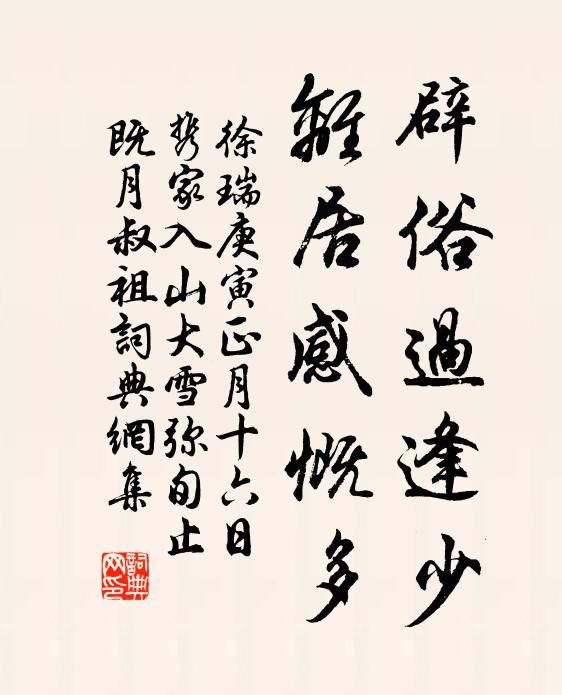 辟俗過逢少
離居感慨多
徐瑞庚寅正月十六日
携家入山大雪弥旬止
既月叔祖詞典網集
詞典
网印